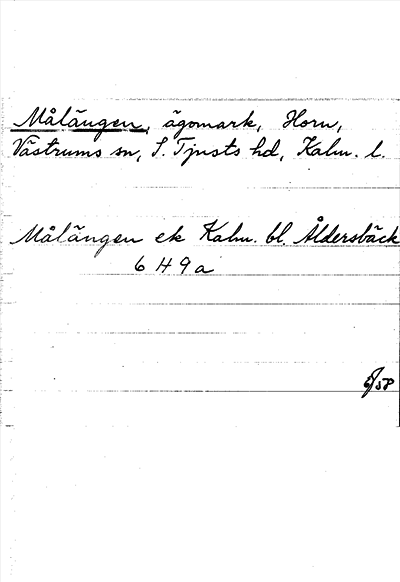 Målängen, ägomark, Horn,
Västrums sn, S. Tjusts hd, Kalm. l.
Målängen ek Kalm. bl. Åldersbäck
6 H 9 a